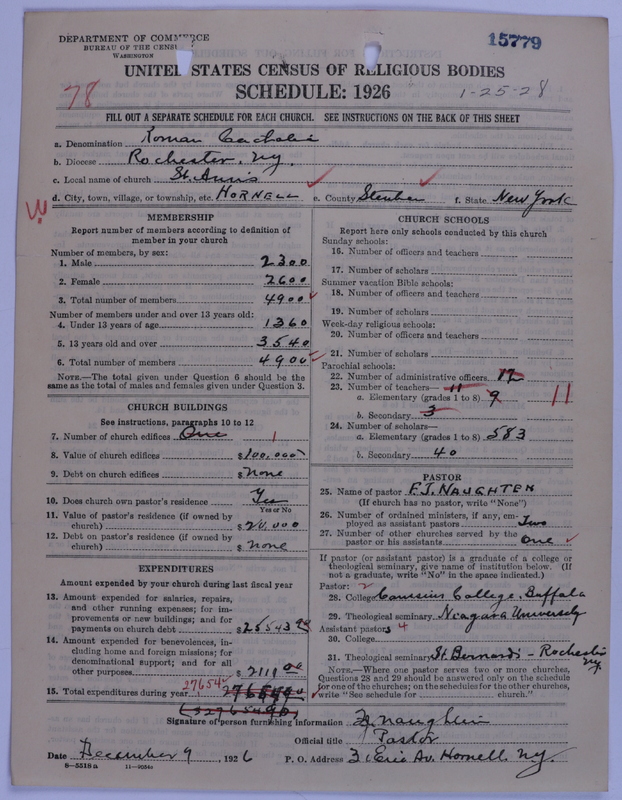 DEPARTMENT OF COMMERCE
BUREAU OF THE CENSUS
WASHINGTON
15779
UNITED STATES CENSUS OF RELIGIOUS BODIES
SCHEDULE: 1926
78
1-25-28
FILL OUT A SEPARATE SCHEDULE FOR EACH CHURCH. SEE INSTRUCTIONS ON THE BACK OF THIS SHEET
a. Denomination Roman Catholic
b. Diocese Rochester, NY.
c. Local name of church St. Ann's
d. City, town, village, or township, etc. HORNELL e. County Steuben f. State New York
MEMBERSHIP
Report number of members according to definition of
member in your church
Number of members, by sex:
1. Male 2300
2. Female 2600
3. Total number of members 4900
Number of members under and over 13 years old:
4. Under 13 years of age 1360
5. 13 years old and over 3540
6. Total number of members 4900
NOTE.—The total given under Question 6 should be the
same as the total of males and females given under Question 3.
CHURCH BUILDINGS
See instructions, paragraphs 10 to 12
7. Number of church edifices One 1
8. Value of church edifices $100,000
9. Debt on church edifices $ None
10. Does church own pastor's residence Yes
Yes or No
11. Value of pastor's residence (if owned by
church) $ 20,000
12. Debt on pastor's residence (if owned by
church) $ None
EXPENDITURES
Amount expended by your church during last fiscal year
13. Amount expended for salaries, repairs,
and other running expenses; for im-
provements or new buildings; and for
payments on church debt $25543
14. Amount expended for benevolences, in-
cluding home and foreign missions; for
denominational support; and for all
other purposes $2111 00
15. Total expenditures during year 27654
CHURCH SCHOOLS
Report here only schools conducted by this church
Sunday schools:
16. Number of officers and teachers
17. Number of scholars
Summer vacation Bible schools:
18. Number of officers and teachers
19. Number of scholars
Week-day religious schools:
20. Number of officers and teachers
21. Number of scholars
Parochial schools:
22. Number of administrative officers 12
23. Number of teachers— 11
a. Elementary (grades 1 to 8) 9 11
b. Secondary 3
24. Number of scholars—
a. Elementary (grades 1 to 8) 583
b. Secondary 40
PASTOR
25. Name of pastor F.J. NAUGHTEN
(If church has no pastor, write "None")
26. Number of ordained ministers, if any, em-
ployed as assistant pastors Two
27. Number of other churches served by the
pastor or his assistants One
If pastor (or assistant pastor) is a graduate of a college or
theological seminary, give name of institution below. (If
not a graduate, write "No" in the space indicated.)
Pastor: 2
28. College Canisius College, Buffalo
29. Theological seminary Niagara University
Assistant pastors 4
30. College
31. Theological seminary St. Bernards - Rochester
NY.
NOTE.—Where one pastor serves two or more churches,
Questions 28 and 29 should be answered only on the schedule
for one of the churches; on the schedules for the other churches,
write "See schedule for church."
Signature of person furnishing information
Official title Pastor
Date December 9, 1926 P. O. Address 31 Erie Av. Hornell N.Y.
8—5518a 11—9034c